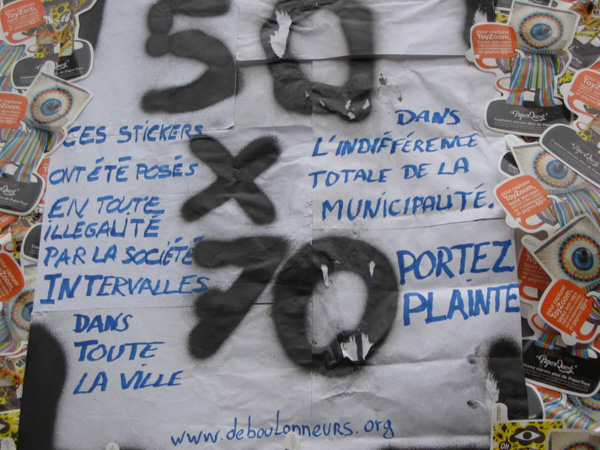 50
x
70
CES STICKERS
ONT ÉTÉ POSÉS
EN TOUTE
ILLÉGALITÉ
PAR LA SOCIÉTÉ
INTERVALLES
DANS
TOUTE
LA VILLE
DANS
L'INDIFFÉRENCE
TOTALE DE LA
MUNICIPALITÉ.
PORTEZ
PLAINTE
www.deboulonneurs.org
ToyZoom
PaperQuest
ToyZoom.
PaperQuest
ToyZoom.
PaperQuest
ToyZoom.
PaperQuest